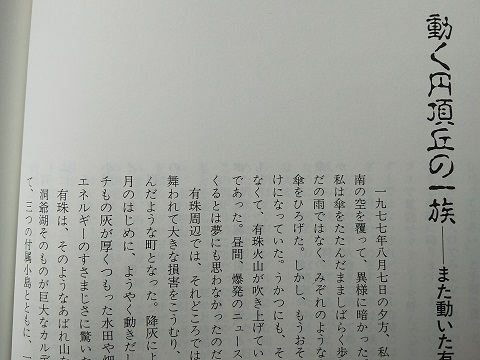 動く円頂丘の一族――また動いた有
一九七七年八月七日の夕方、私
南の空を覆って、異様に暗かった
私は傘をたたんだまましばらく歩
だの雨ではなく、みぞれのような
傘をひろげた。しかし、もうおそ
けになっていた。うかつにも、そ
なくて、有珠火山が吹き上げてい
であった。昼間、爆発のニュース
くるとは夢にも思わなかったのだ
有珠周辺では、それどころでは
舞われて大きな損害をこうむり、
んだような町となった。降灰によ
月のはじめに、ようやく動きだし
チもの灰が厚くつもった水田や畑
エネルギーのすさまじさに驚いた
有珠は、そのようなあばれ山な
洞爺湖そのものが巨大なカルデ
て、三つの付属小島とともに、一